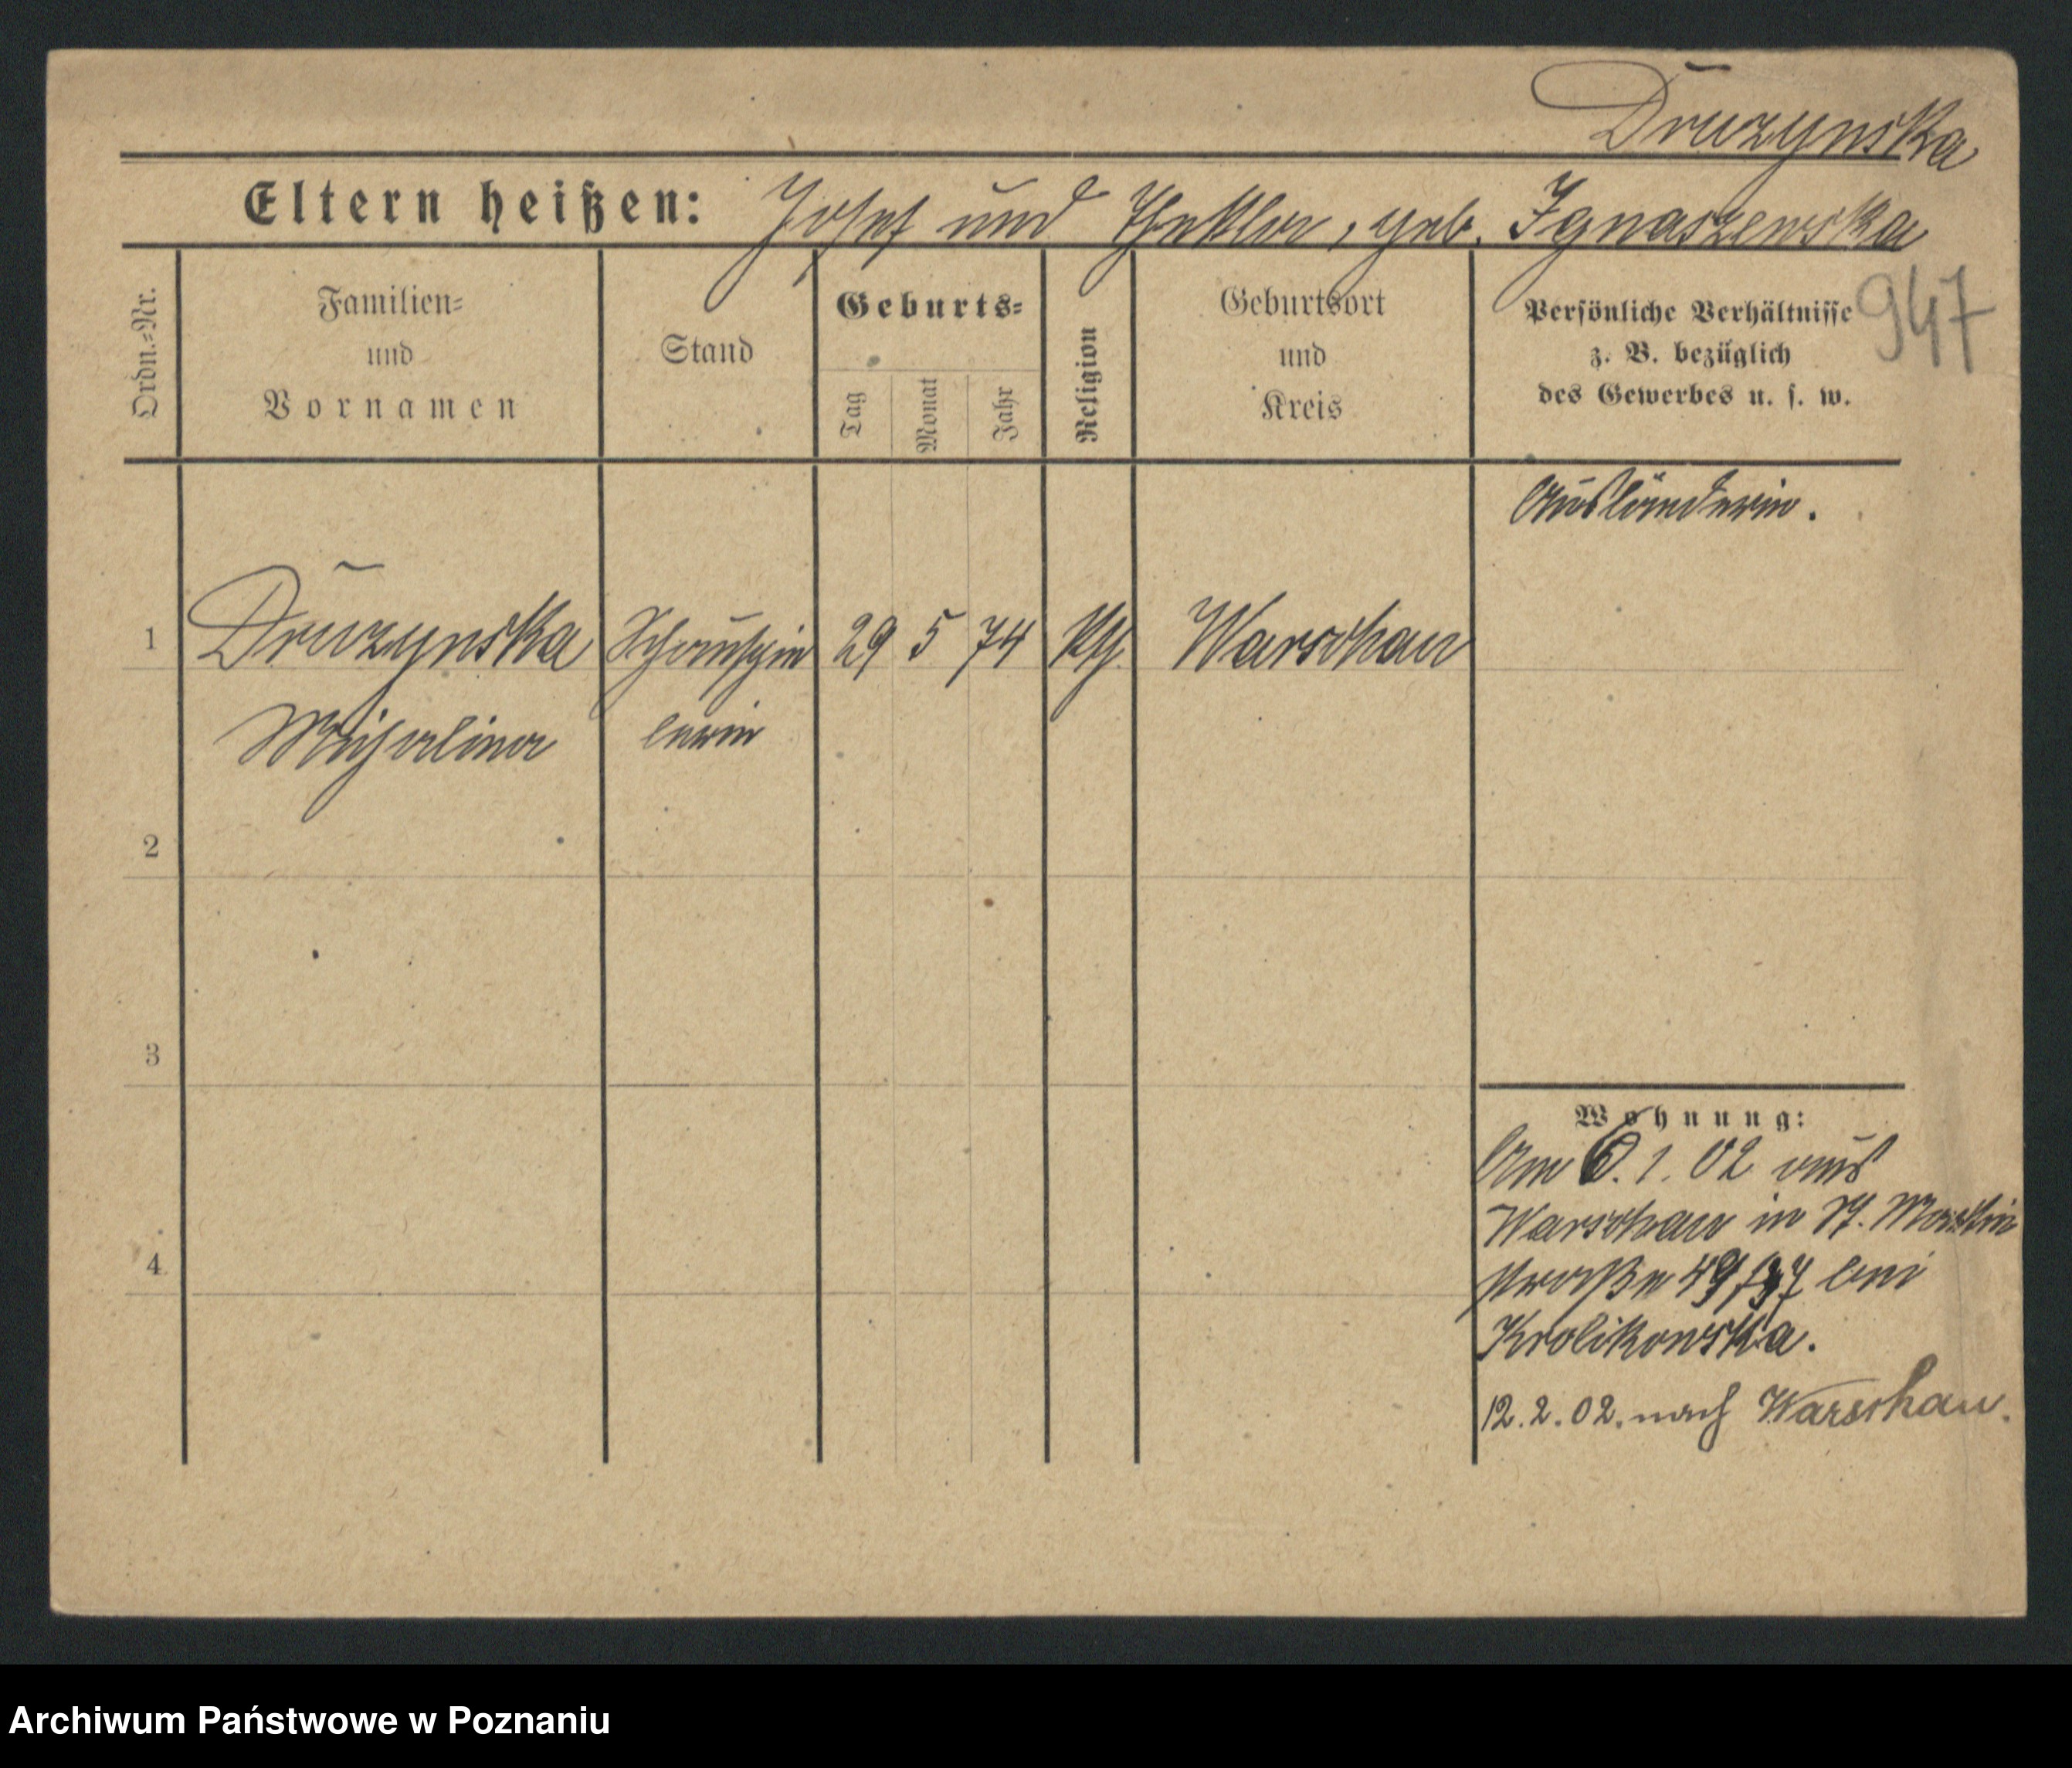 Druzynska
Eltern heißen: Josef und Thekla, geb. Ignaszewska
947
Ordn.-Nr.
Familien-
und
Vornamen
Stand
Geburts-
Tag
Monat
Jahr
Religion
Geburtsort
und
Kreis
Persönliche Verhältnisse
z. B. bezüglich
des Gewerbes u. s. w.
Ausländerin.
1 Druzynska Schauspie 29 5 74 kth. Warschau
Michalina lerin
2
3
4
Wohnung:
Am 6. 1. 02 aus
Warschau in St. Martin
straße 49/ bei
Krolikowska.
12. 2. 02. nach Warschau.
Archiwum Państwowe w Poznaniu